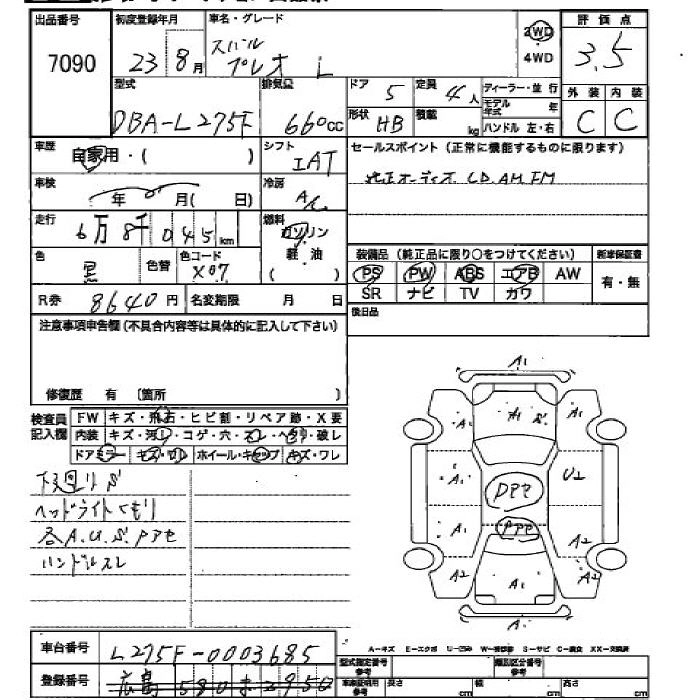 出品番号 初度登録年月 車名・グレード 評価点
7090 23 8月 スバル プレオ L 2WD 4WD 3.5
型式 排気量 ドア 定員 ディーラー・並行 外装 内装
DBA-L275F 660cc 5 4人 モデル年式 年 C C
形状 HB 積載 kg ハンドル 左・右
車歴 自家用・( ) シフト IAT セールスポイント(正常に機能するものに限ります)
車検 年 月( 日) 冷房 A/C 純正オーディオ CD.AM.FM
走行 6万8千045km 燃料 ガソリン 軽油 ( )
色 黒 色替 色コード X07 装備品(純正品に限り○をつけてください) 新車保証書
PS PW ABS エアB AW 有・無
R券 8640円 名変期限 月 日 SR ナビ TV カワ
注意事項申告欄(不具合内容等は具体的に記入して下さい) 後日品
修復歴 有 〔箇所 〕
検査員記入欄 FW キズ・飛石・ヒビ割・リペア跡・X要
内装 キズ・汚レ・コゲ・穴・スレ・ヘタリ・破レ
ドアミラー キズ・ワレ ホイール・キャップ キズ・ワレ
下廻りS
ヘッドライトくもり
各A.U.S Pアセ
ハンドルスレ
A1
A1
A1 S
A1
A1
U2
Pアセ
Pアセ
A1
A2
A2
A2
A1
A1
車台番号 L275F-0003685
登録番号 広島 580
A-キズ E-エクボ U-凹み W-補修跡 S-サビ C-腐食 XX-交換済
型式指定番号 参考 類別区分番号 参考
車庫証明用 参考 長さ cm 幅 cm 高さ cm